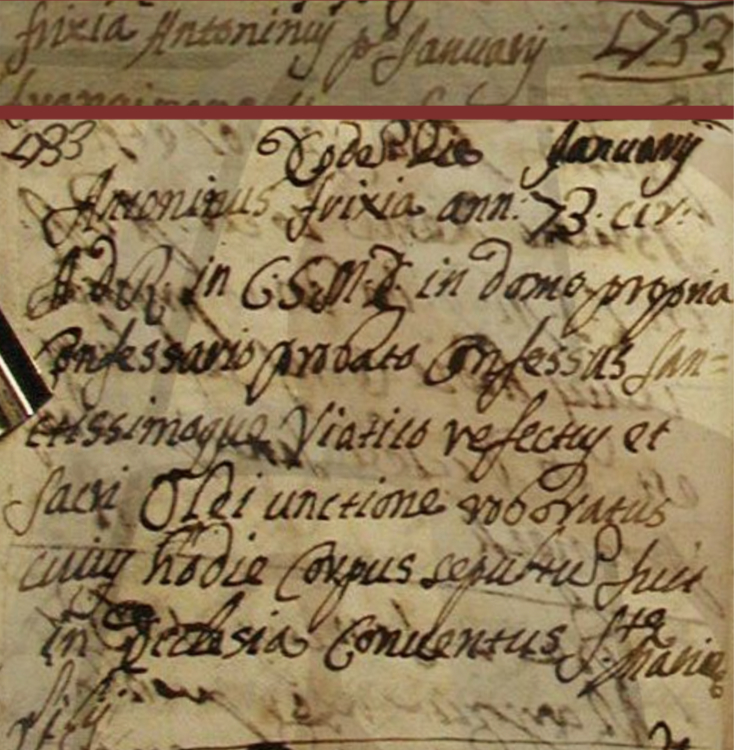 frixia Antoninus po January 1733
1733 Eode Die January
Antoninus frixia ann: 73. cir:
A.D.R. in C.S.M.E. in domo propria
Confessario probato Confessus San=
ctissimoque Viatico refectus et
sacri Olei unctione roboratus
cuius hodie Corpus sepultu fuit
in Ecclesia Conventus Sta
Maria